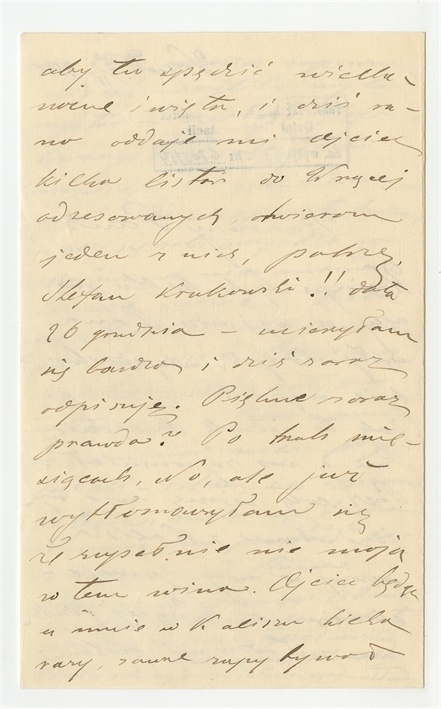 aby tu spędzić wielka-
nocne święta, i dziś ra-
no oddaje mi ojciec
kilka listów do
adresowanych, otwieram
jeden z nich, patrzę,
Stefan Krakowski!! data
26 grudnia – ucieszyłam
się bardzo i dziś zaraz
odpisuję. Piękne zaraz
prawda? Po trzech mie-
siącach. No, ale już
wytłomaczyłam się
że zupełnie nie moja
w tem wina. Ojciec będąc
u mnie w Kaliszu kilka
razy, zawsze zapominał